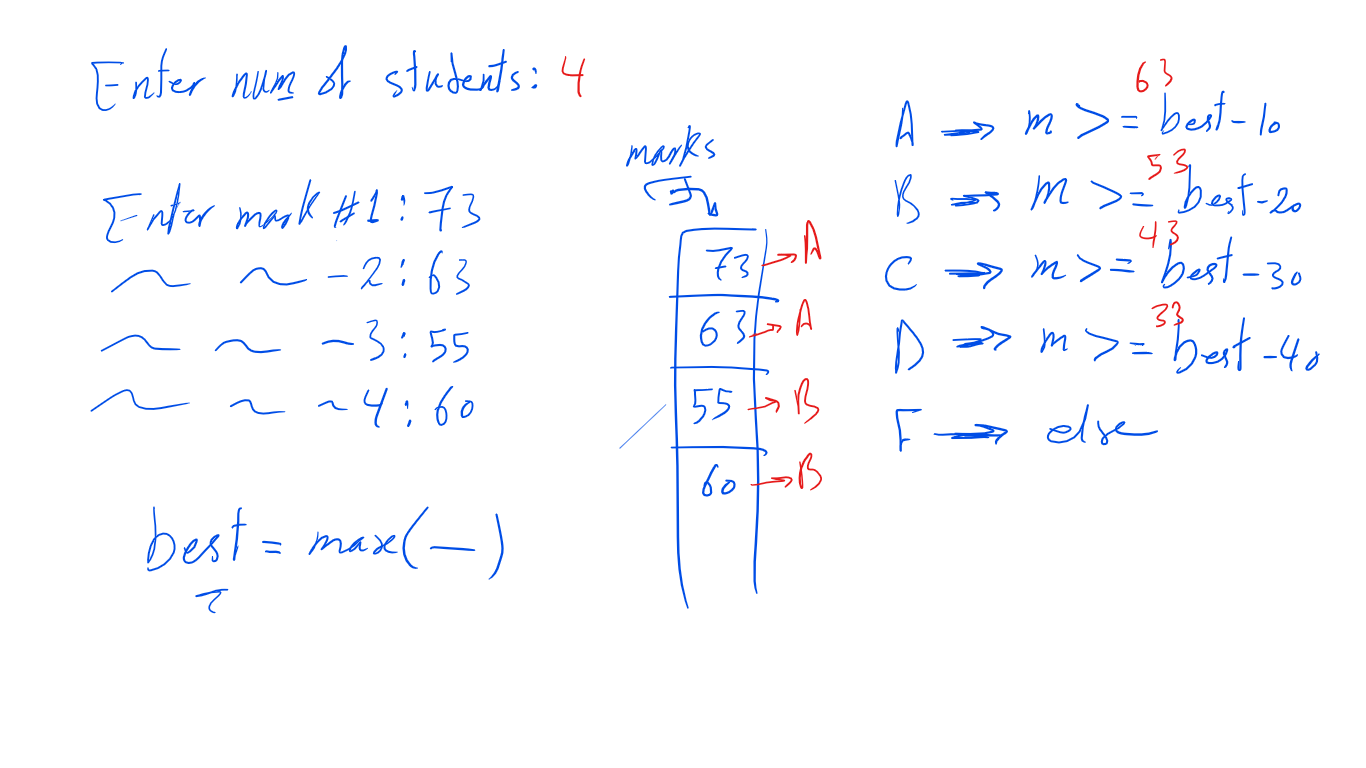 Enter num of students: 4
Enter mark #1: 73
~ ~ - 2: 63
~ ~ ~ 3: 55
~ ~ ~ 4: 60
best = max(—)
marks
73 → A
63 → A
55 → B
60 → B
63
A → m >= best-10
53
B → m >= best-20
43
C → m >= best-30
33
D → m >= best-40
F → else